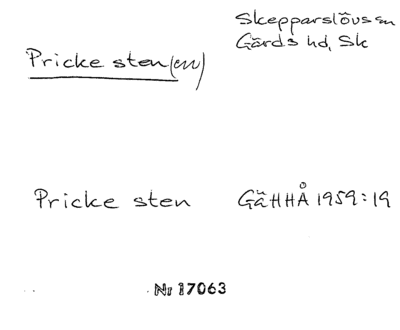 Skepparslövs sn
Gärds hd, Sk
Pricke sten(en)
Pricke sten GäHHÅ 1959:19
Nr 17063